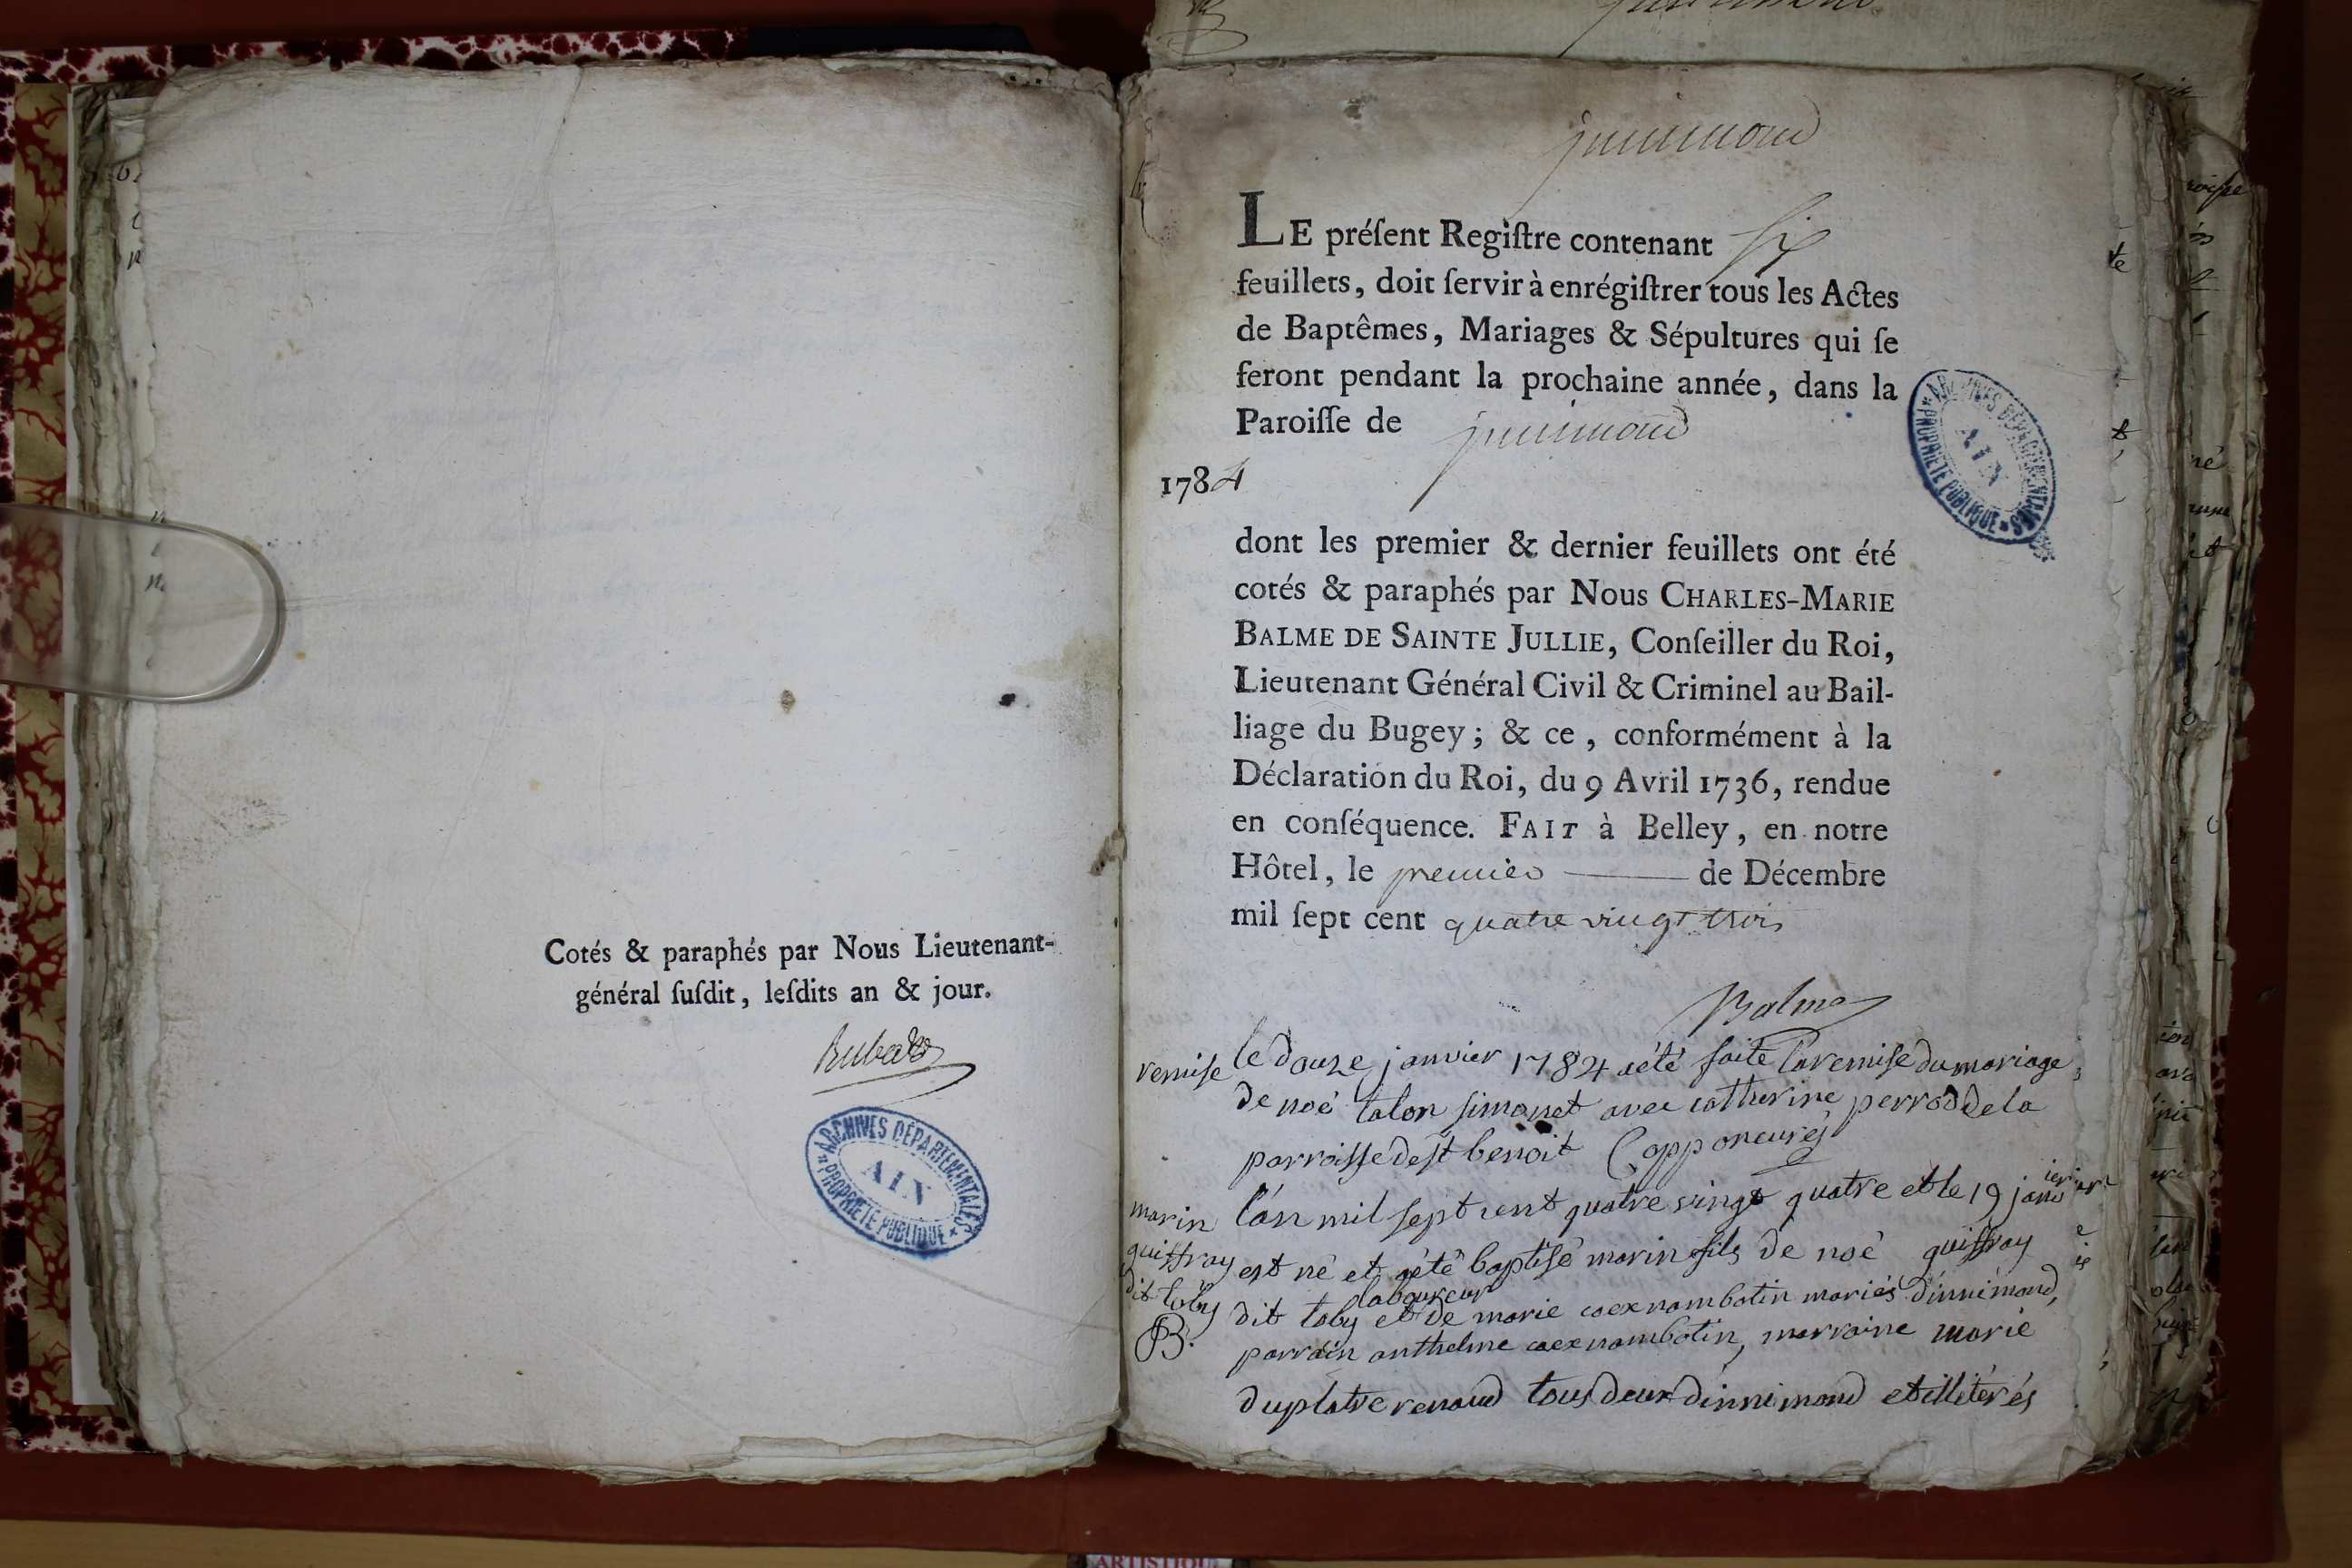 Cotés & paraphés par Nous Lieutenant-
général ſuſdit, leſdits an & jour.
ARCHIVES DÉPARTEMENTALES
AIN
PROPRIÉTÉ PUBLIQUE
jnnimond
LE préſent Regiſtre contenant six
feuillets, doit ſervir à enrégiſtrer tous les Actes
de Baptêmes, Mariages & Sépultures qui ſe
feront pendant la prochaine année, dans la
Paroiſſe de jnnimond
1784
ARCHIVES DÉPARTEMENTALES
AIN
PROPRIÉTÉ PUBLIQUE
dont les premier & dernier feuillets ont été
cotés & paraphés par Nous CHARLES-MARIE
BALME DE SAINTE JULLIE, Conſeiller du Roi,
Lieutenant Général Civil & Criminel au Bail-
liage du Bugey ; & ce , conformément à la
Déclaration du Roi, du 9 Avril 1736, rendue
en conſéquence. FAIT à Belley, en notre
Hôtel, le premier de Décembre
mil ſept cent quatre vingt trois
Balme
remise le douze janvier 1784 a été faite la remise du mariage
de noé talon simonet avec catherine perrod de la
parroisse de st benoit
marin l'an mil sept cent quatre vingt quatre et le 19 janvier
guiffray est né et a été baptisé marin fils de noé guiffray
dit toby laboureur
B. dit toby et de marie caexnambotin mariés d'innimond,
parrain anthelme caexnambotin, marraine marie
duplatre renaud tous deux d'innimond et illiterés
ARTISTIQUE